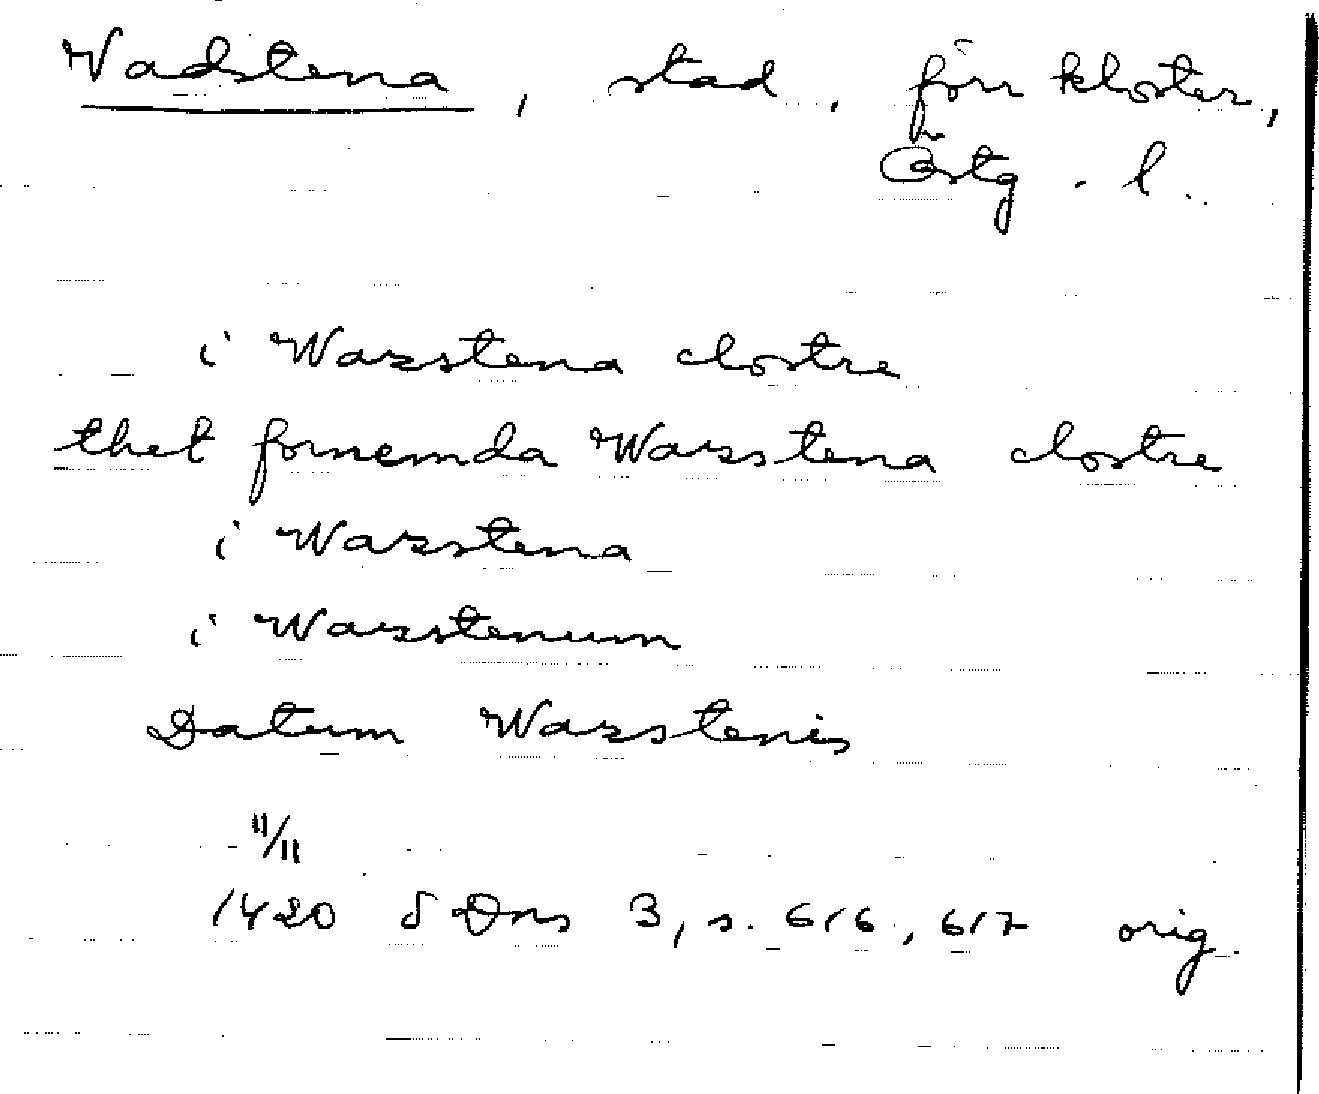 Vadstena, stad, förr kloster,
Östg. l.
i Wazstena clostre
thet fornemda Wazstena clostre
i Wazstena
i Wazstenum
Datum Wazstenis
11/11
1420 SDns 3, s. 616, 617 orig.